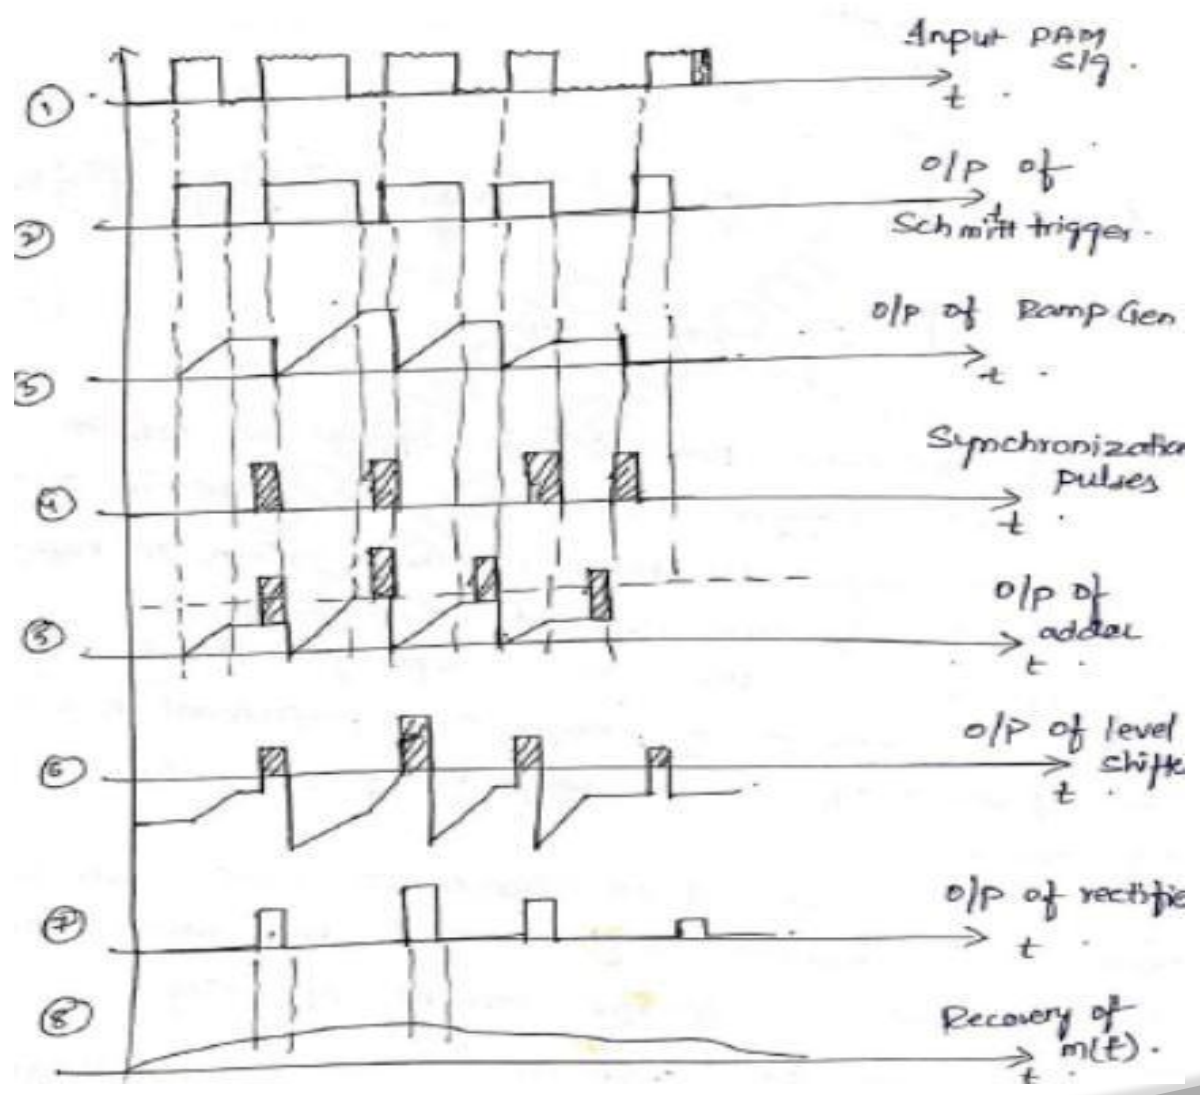 Input PAM
Sig.
1
t
o/p of
2
t
Schmitt trigger.
o/p of Ramp Gen
3
t
Synchronization
pulses
4
t
o/p of
adder
5
t
o/p of level
Shifte
6
t
o/p of rectifie
7
t
8
Recovery of
m(t).
t